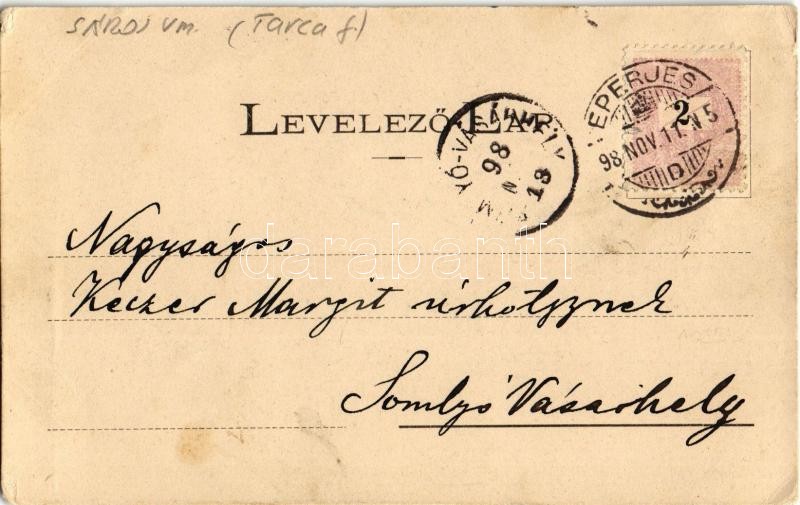 SÁROS vm. (Tarca f)
EPERJES
98 NOV. 11. N 5
2
LEVELEZŐ-LAP
YÓ-VÁSÁRHELY
98
N
13
darabanth
Nagyságos
Keczer Margit úrhölgynek
Somlyó Vásárhely